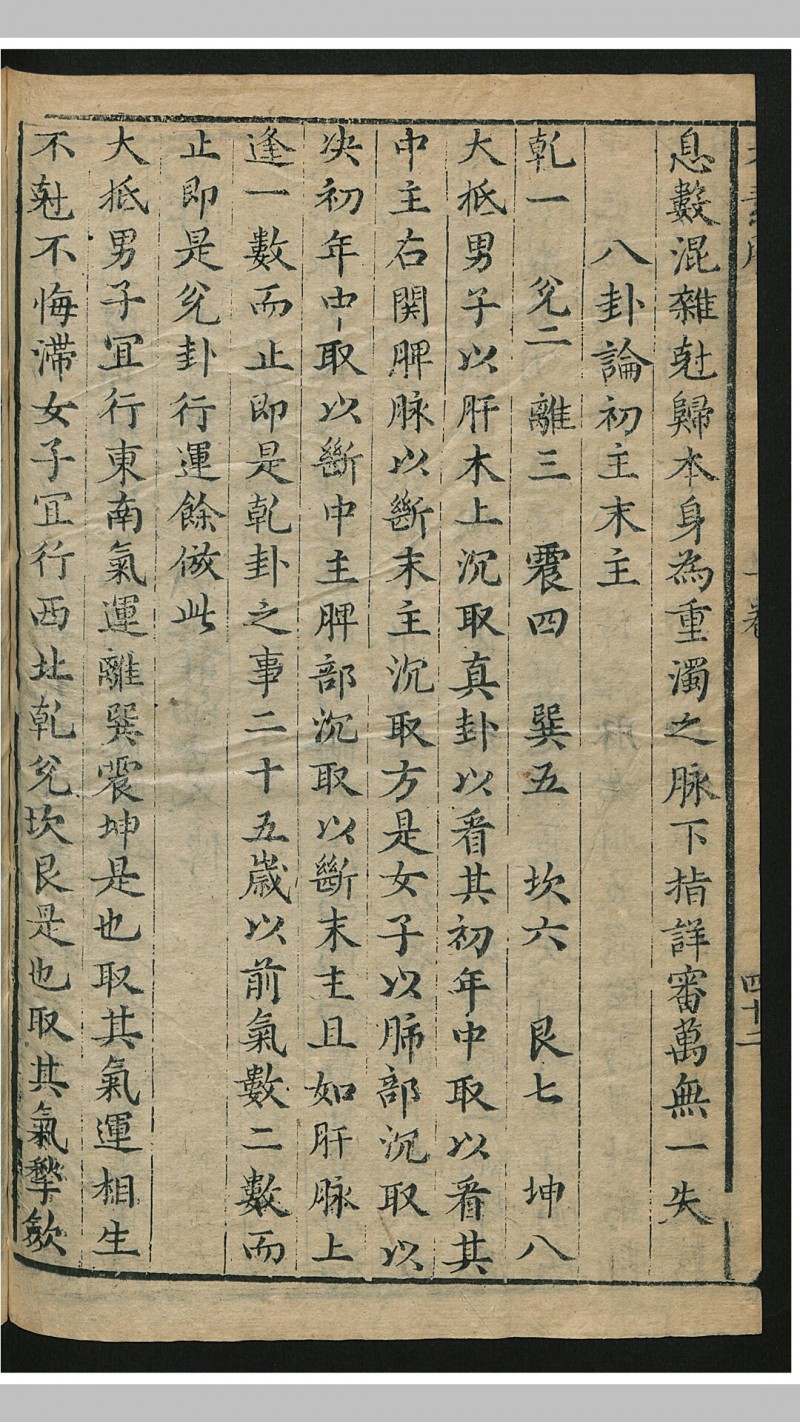 息數混雜尅歸本身為重濁之脈下指詳審萬無一失
八卦論初主末主
乾一 兊二 離三 震四 巽五 坎六 艮七 坤八
大抵男子以肝木上沉取真卦以看其初年中取以看其
中主右関脾脉以斷末主沉取方是女子以肺部沉取以
决初年中取以斷中主脾部沉取以斷末主且如肝脉上
逢一數而止即是乾卦之事二十五歲以前氣數二數而
止即是兊卦行運餘倣此
大抵男子宜行東南氣運離巽震坤是也取其氣運相生
不尅不悔滯女子宜行西北乾兊坎艮是也取其氣擎歛
四十二